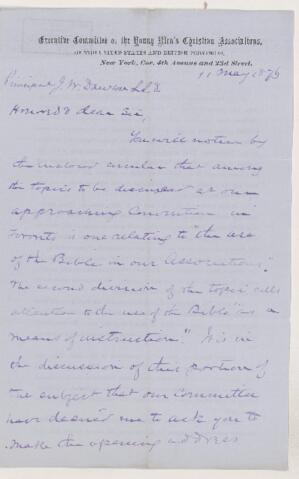 Executive Committee of the Young Men's Christian Associations,
OF THE UNITED STATES AND BRITISH PROVINCES,
New York, Cor. 4th Avenue and 23d Street.
11 May 1876
Principal J. W. Dawson LL.D
Honored & dear Sir,
You will notice by
the enclosed circular that among
the topics to be discussed at our
approaching Convention in
Toronto is one relating to "the use
of the Bible in our Associations".
The second division of the topic calls
attention to the use of the Bible "as a
means of instruction." It is in
the discussion of this portion of
the subject that our Committee
have desired me to ask you to
make the opening address